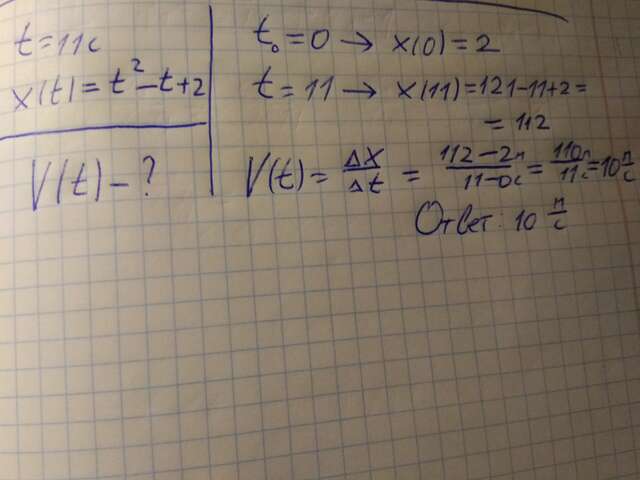 t = 11с
x(t) = t² - t + 2
V(t) - ?
t₀ = 0 → x(0) = 2
t = 11 → x(11) = 121 - 11 + 2 =
= 112
V(t) = Δx/Δt = 112 - 2м/11 - 0с = 110м/11с = 10 м/с
Ответ: 10 м/с